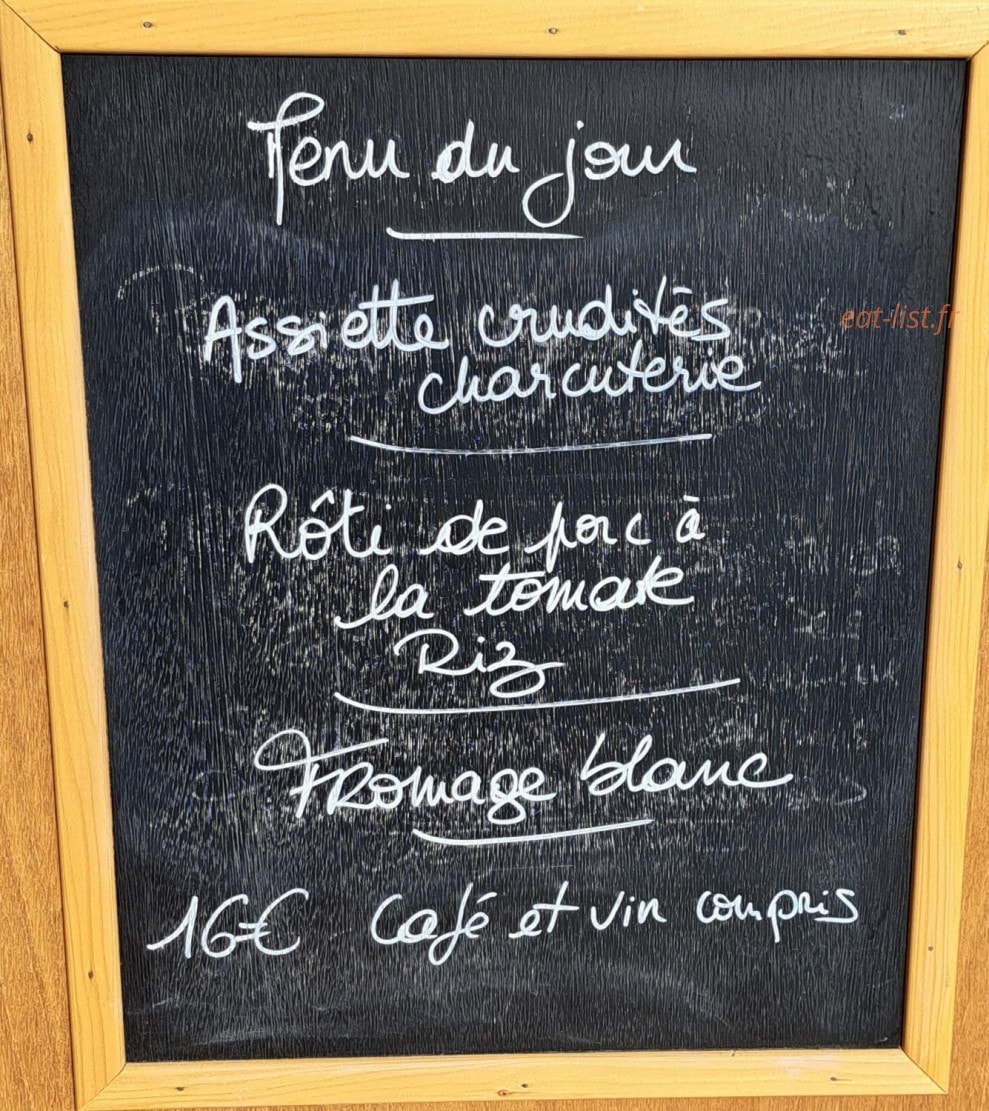 Menu du jour
Assiette crudités
charcuterie
eat-list.fr
Rôti de porc à
la tomate
Riz
Fromage blanc
16€ Café et vin compris